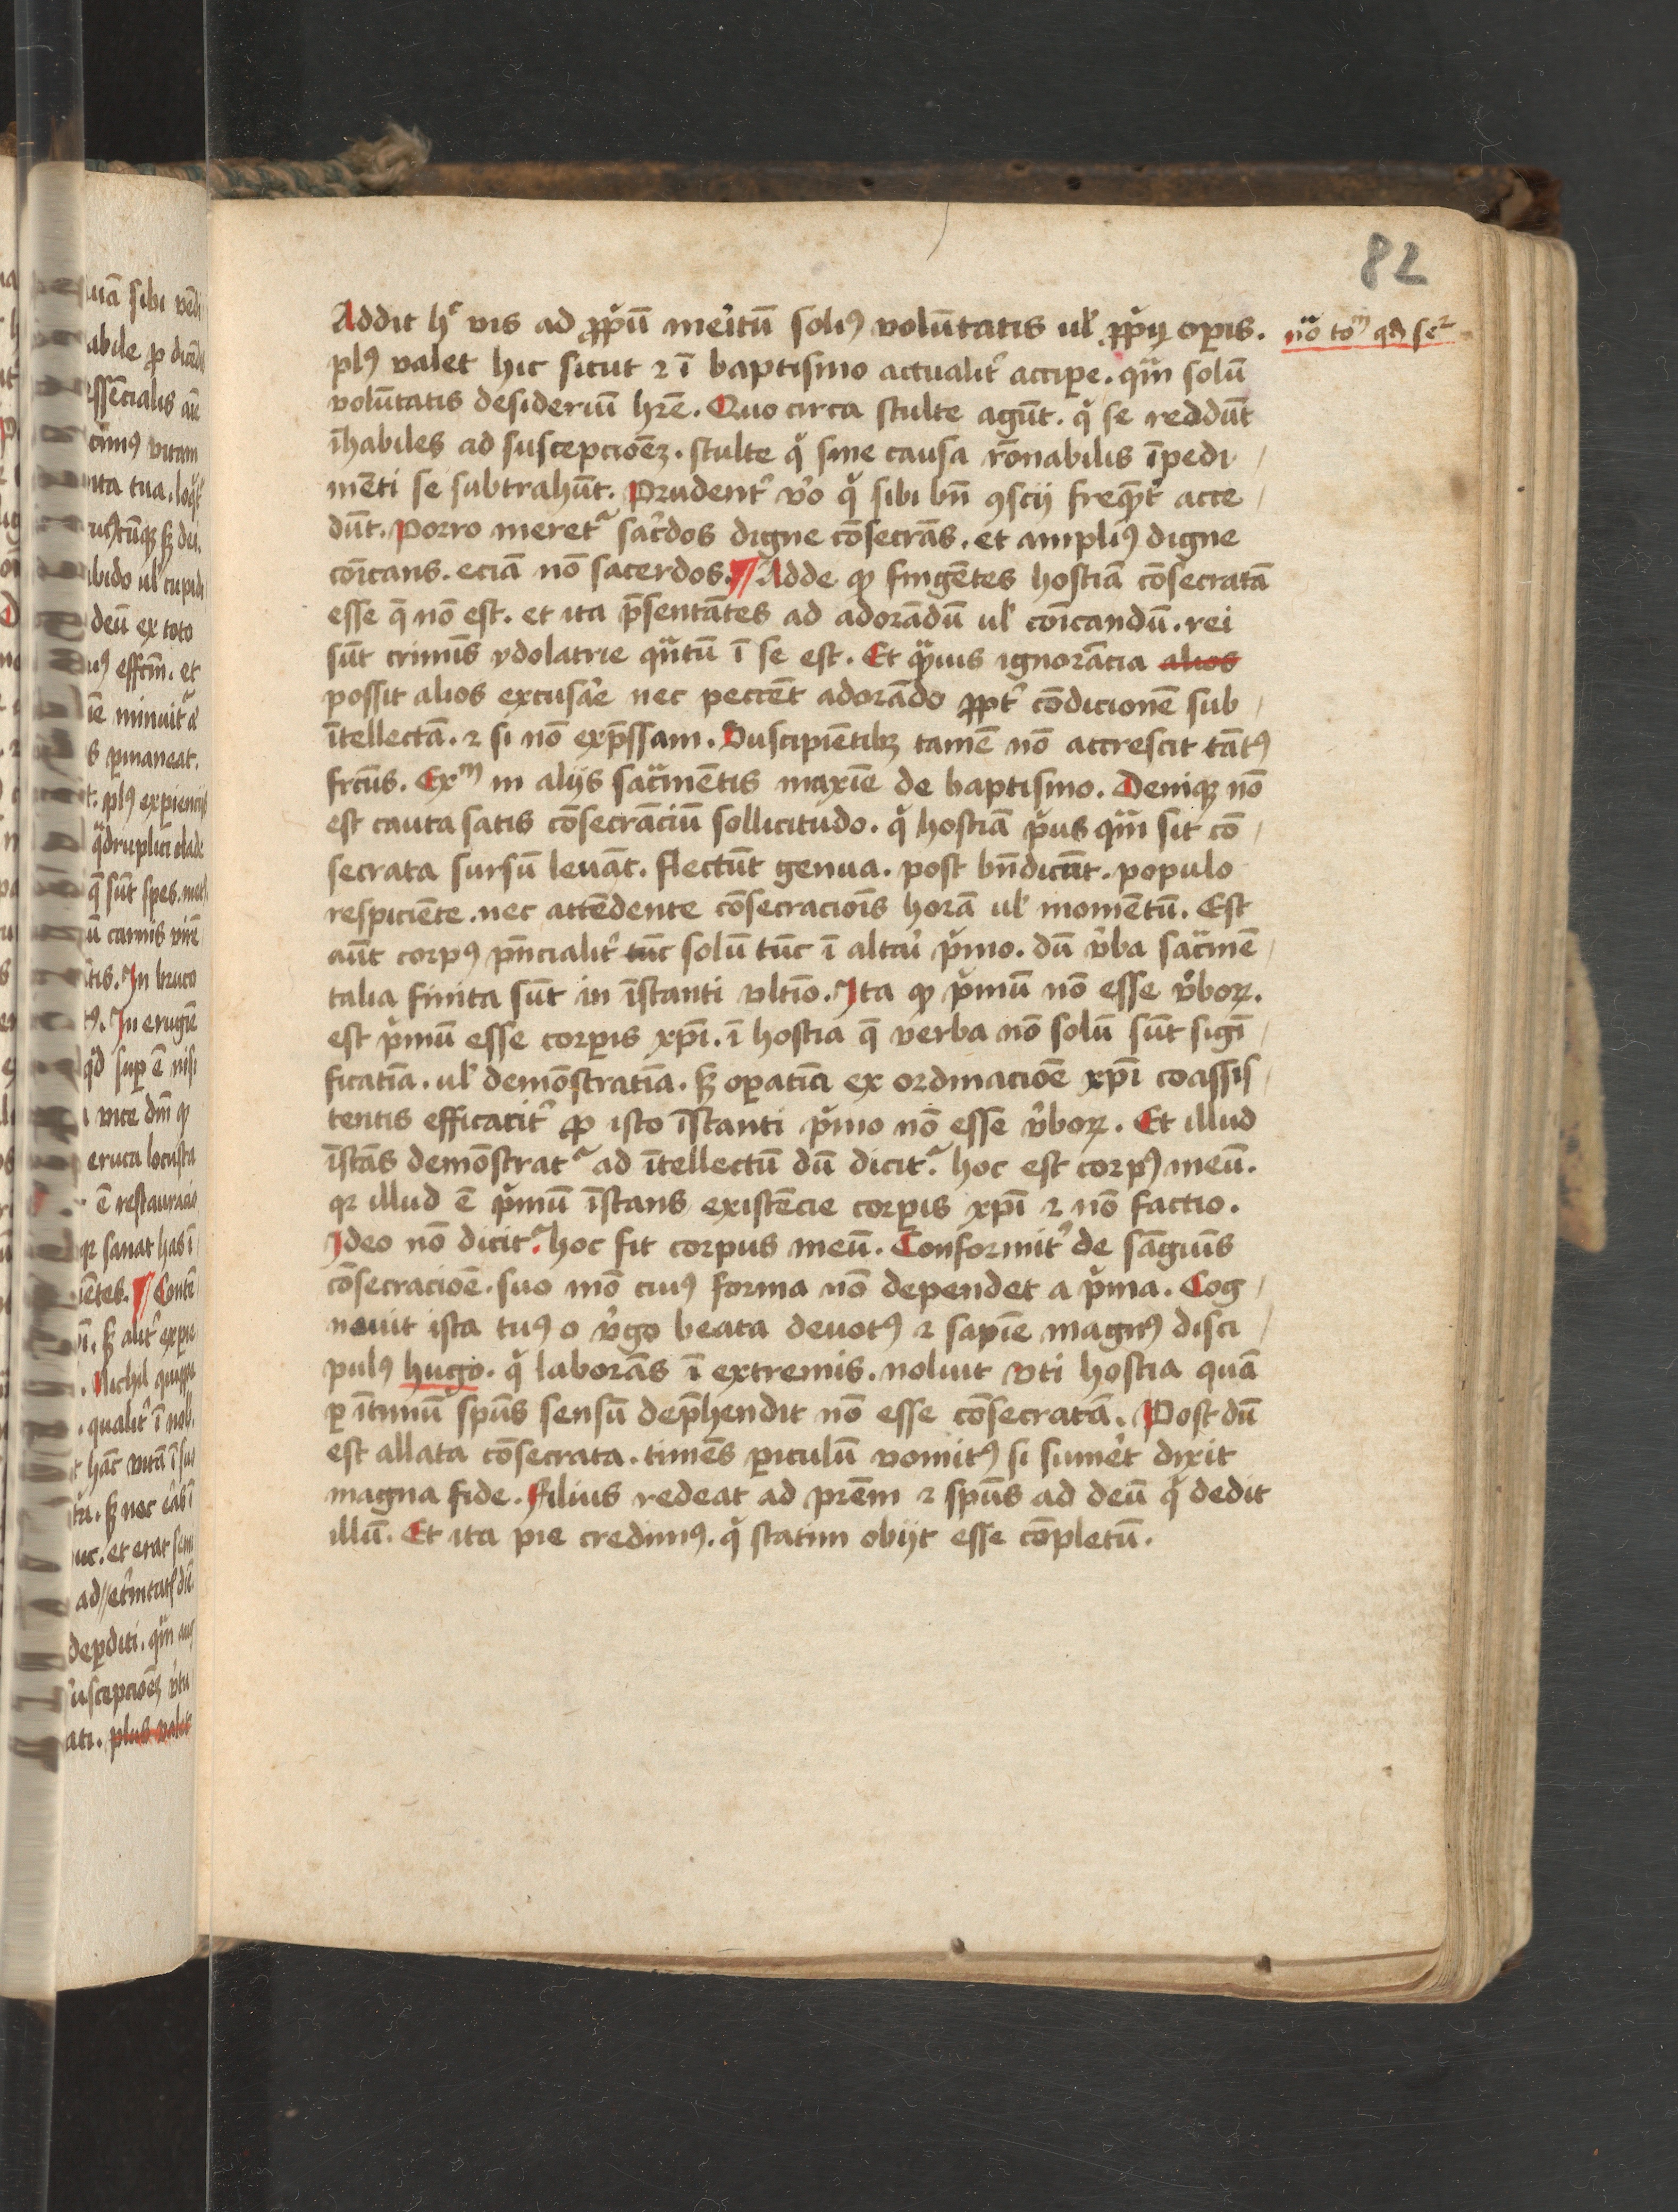 82
Addit hͨ vis ad ꝓpͥū meritū soliꝰ volūtatis ul̕ ꝓpͥj oꝑis.
nͣo toᵐ qd̕ seʳ
plꝰ valet hic sicut ⁊ ī baptismo actualit̕ acciꝑe. qͣm solū
volūtatis desideriū hr̄e. Quo circa stulte agūt. qͥ se reddūt
īhabiles ad suscepcioēꝫ. stulte qͥ sine causa rōnabilis īpedi
mēti se subtrahūt. Prudent̕ v̕o qͥ sibi bn̄ ꝯscij freqͣ̄t̕ acce
dūt. Porro meret᷑ sac̕dos digne cōsecrās. et ampliꝰ digne
cōicans. eciā nō sacerdos. Adde ꝙ fingētes hostiā cōsecratā
esse q̄ nō est. et ita p̄sentātes ad adorādū ul̕ cōicandū. rei
sūt criminis ydolatrie qͣntū ī se est. Et qͣmuis ignorācia alios
possit alios excusare nec peccēt adorādo ꝓpt̕ cōdicionē sub
ītellectā. ⁊ si nō exp̄ssam. Suscipiētibꝫ tamē nō accrescit tātꝰ
frctus. Exᵐ in alijs sacͣmētis maxīe de baptismo. Deniqꝫ nō
est cauta satis cōsecrāciū sollicitudo. qͥ hostiā pͥus qͣm sit cō
secrata sursū leuāt. flectūt genua. post bn̄dicūt. populo
respiciēte. nec attēdente cōsecracioīs horā ul̕ momētū. Est
aūt corpꝰ pn̄cialit̕ tūc solū tūc ī altari pͥmo. dū v̕ba sacͣmē
talia finita sūt in īstanti vltīo. Ita ꝙ pͥmū nō esse v̕boꝝ.
est pͥmū esse corꝑis xp̄i. ī hostia q̄ verba nō solū sūt sigī
ficatīa. ul̕ demōstratīa. sꝫ oꝑatīa ex ordinacioē xp̄i coassis
tentis efficacit̕ ꝓ isto īstanti pͥmo nō esse v̕boꝝ. Et illud
īstās demōstrat᷑ ad ītellectū dū dicit᷑. hoc est corpꝰ meū.
qꝛ illud ē pͥmū īstans existēcie corꝑis xp̄i ⁊ nō factio.
Ideo nō dicit᷑. hoc fit corpus meū. Conformit̕ de sāguīs
cōsecracioē. suo mō cuiꝰ forma nō dependet a pͥma. Cog
nouit ista tuꝰ o v̕go beata deuotꝰ ⁊ sapīe magnꝰ disci
pulꝰ hugo. qͥ laborās ī extremis. noluit vti hostia quā
ꝑ ītimū spūs sensū dep̄hendit nō esse cōsecratā. Post dū
est allata cōsecrata. timēs ꝑiculū vomitꝰ si sum̕et dixit
magna fide. filius redeat ad prēm ⁊ spūs ad deū qͥ dedit
illū. Et ita pie credimꝰ. qͥ statim obijt esse cōpletū.